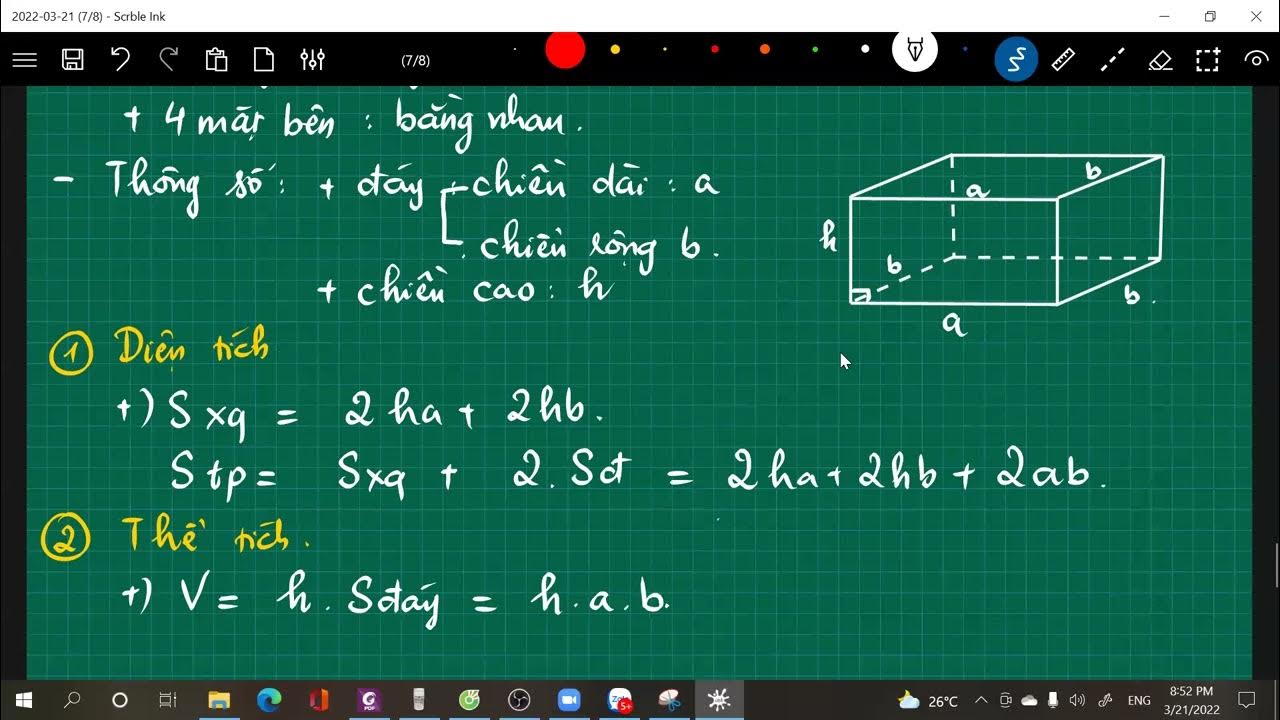 2022-03-21 (7/8) - Scrble Ink
(7/8)
+ 4 mặt bên : bằng nhau.
- Thông số : + đáy chiều dài : a
chiều rộng b.
+ chiều cao : h
a
b
h
b
b.
a
① Diện tích
+) Sxq = 2ha + 2hb.
Stp = Sxq + 2. Sđ = 2ha + 2hb + 2ab.
② Thể tích.
+) V = h . Sđáy = h . a . b.
PDF
Zalo
5+
26°C
ENG
8:52 PM
3/21/2022